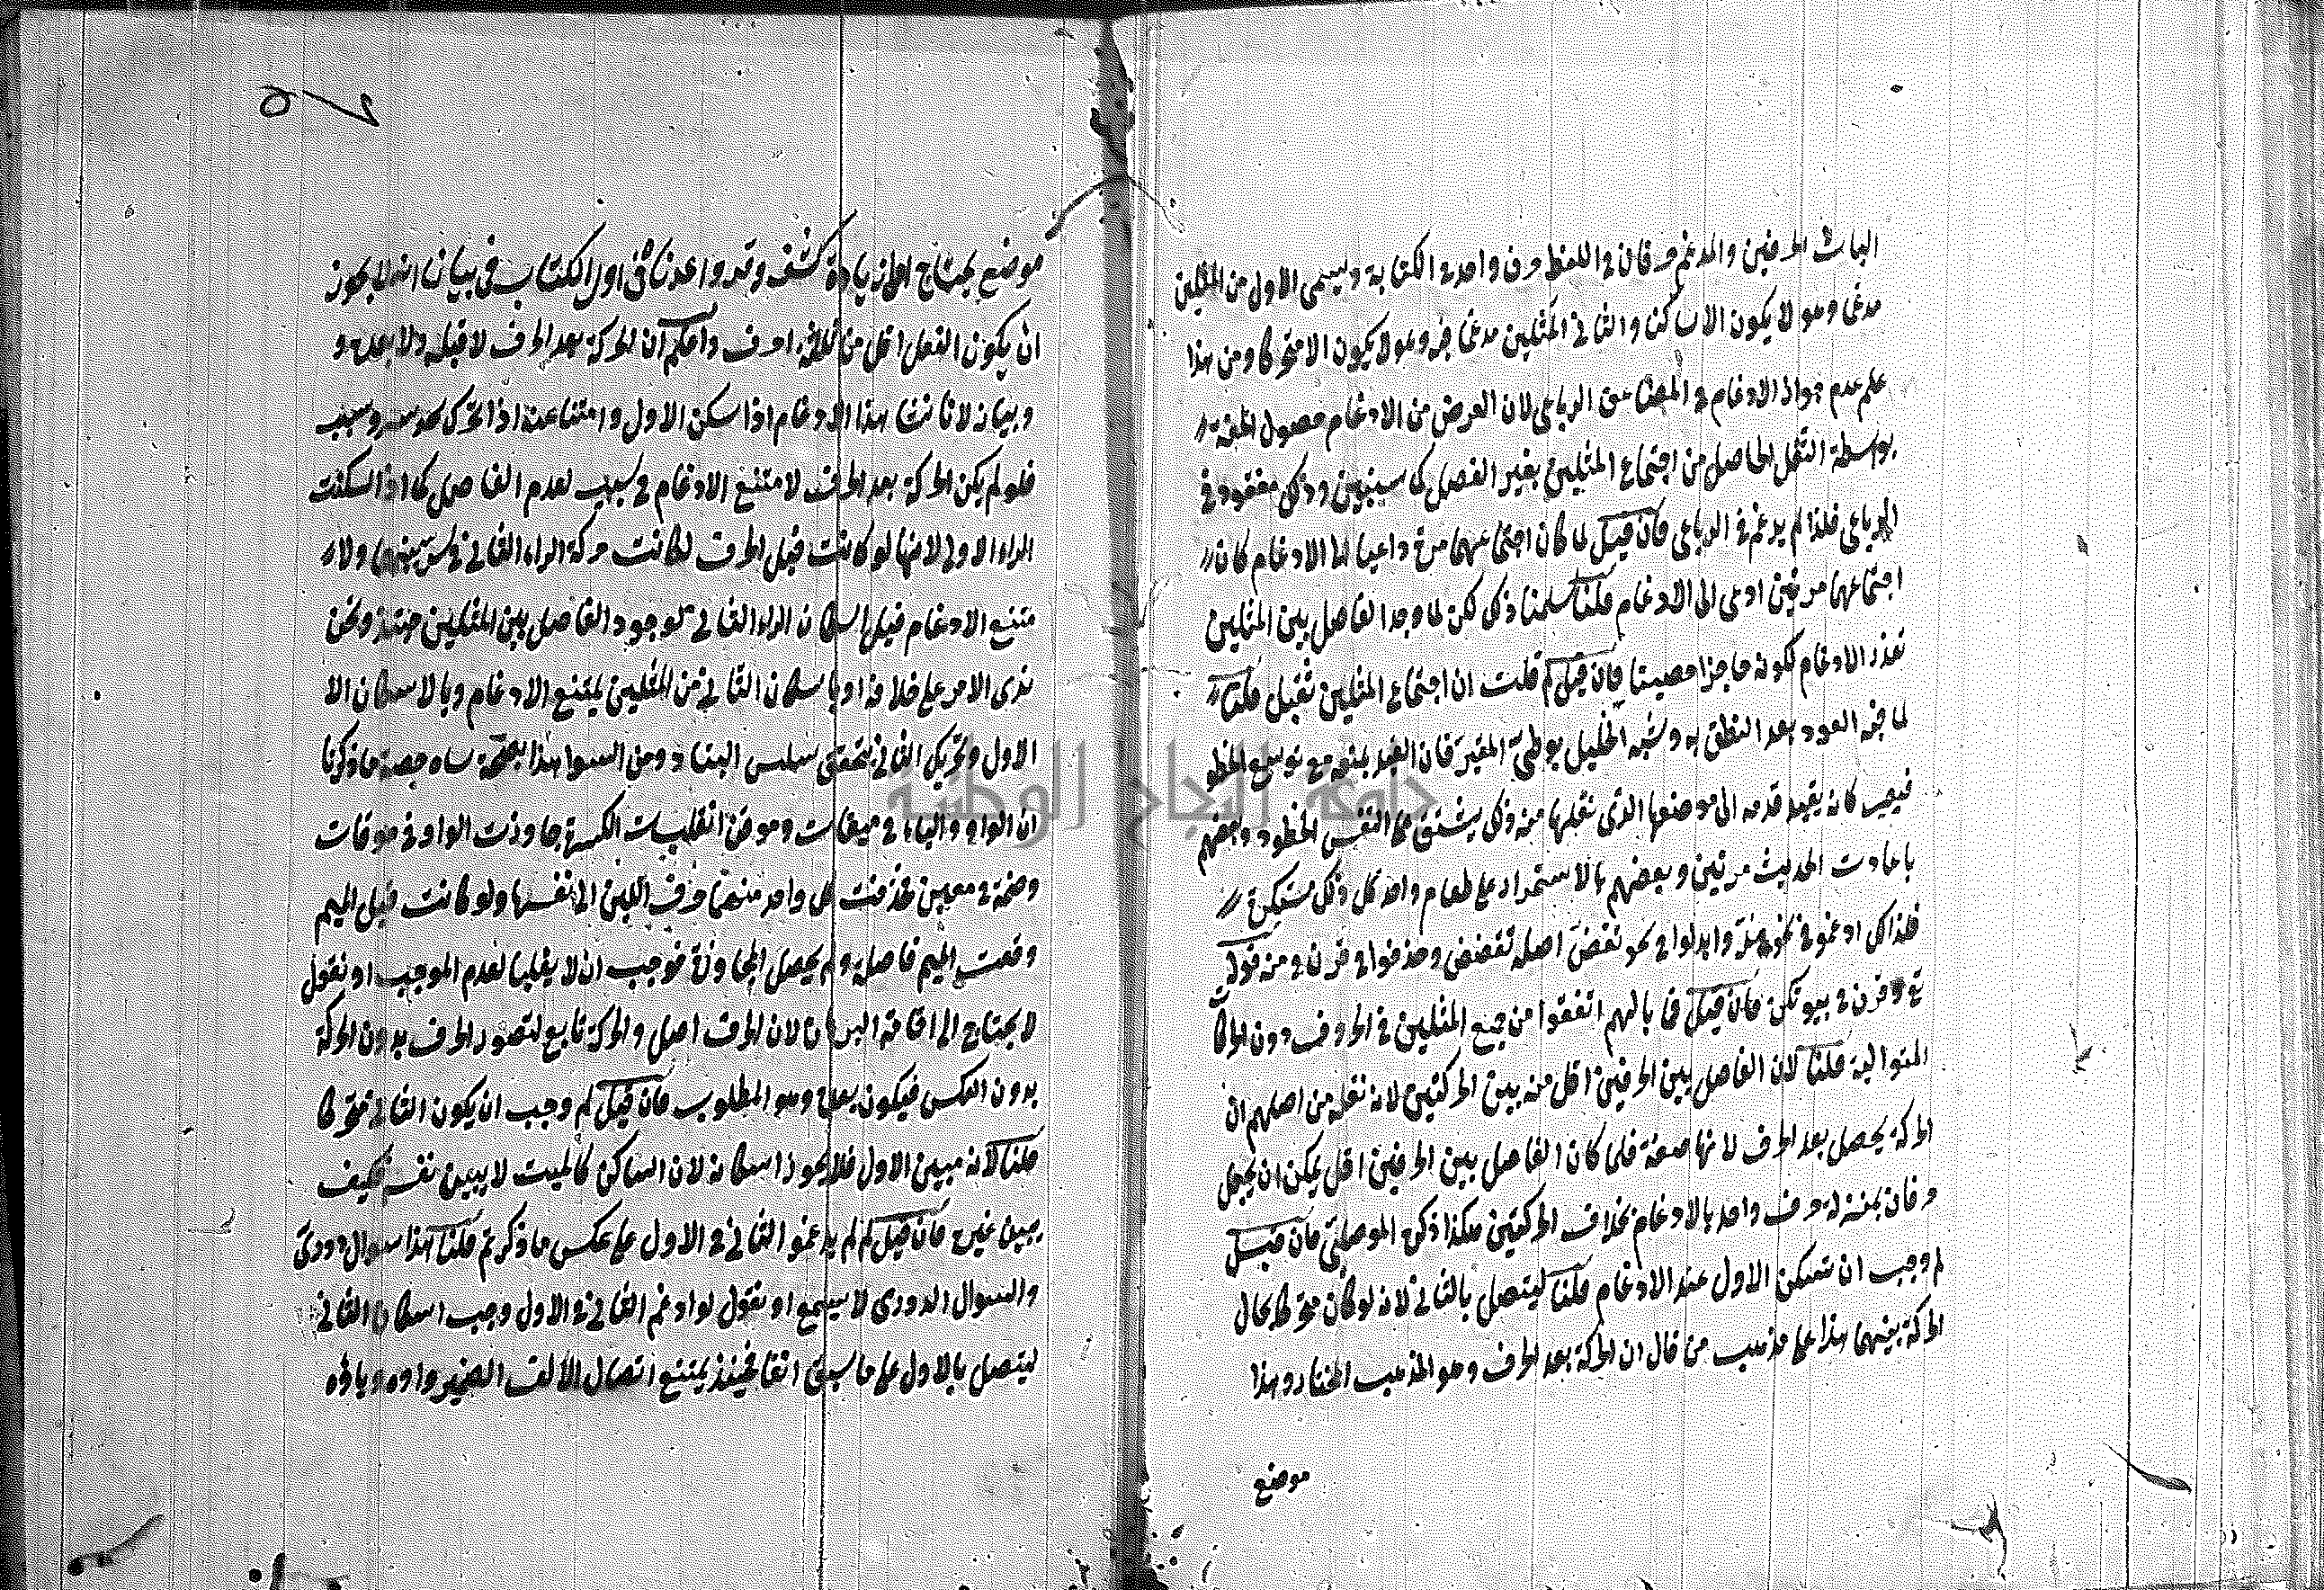 الباث الحرفين والمدغم حرفان في اللفظ حرف واحد في الكتابة ويسمى الاول من المثلين
مدغما وهو لا يكون الا ساكنا والثاني المثلين مدغما فيه وهو لا يكون الا متحركا ومن هذا
علم عدم جواز الادغام في المضاعف الرباعي لان الغرض من الادغام حصول الخفة
بواسطة الثقل الحاصل من اجتماع المثلين بغير الفصل كما سيبين وذلك مفقود في
الرباعي فلذا لم يدغم في الرباعي فان قيل لما كان اجتماعهما مرة داعيا الى الادغام كان
اجتماعهما مرتين ادعى الى الادغام قلنا سلمنا ذلك لكن لما وجد الفاصل بين المثلين
تعذر الادغام لكونه حاجزا حصينا فان قيل لم قلت ان اجتماع المثلين ثقيل قلنا
لما فيه العود بعد النطق به وشبه الخليل بوطئ المقيد فان القيد يمنعه مع توسع الخطو
فيصير كانه يقيد قدمه الى موضعها الذي نقلها منه وذلك يشتق على النفس الخطود وبعضهم
باعادت الحديث مرتين وبعضهم بالاستمرار على طعام واحد كل ذلك مستكره
فلذلك ادغموا في نحو وابدلوا في نحو تقضى اصله تقضض وحذفوا في قرن ومنه قوله
تع وقرن في بيوتكن فان قيل فما بالهم اتفقوا من جمع المثلين في الحروف دون الحركات
المتوالية قلنا لان الفاصل بين الحرفين اقل منه بين الحركتين لانه نقله من اصلهم ان
الحركة يحصل بعد الحرف لانها صفة فلما كان الفاصل بين الحرفين اقل يمكن ان يجعل
حرفان بمنزلة حرف واحد بالادغام بخلاف الحركتين هكذا ذكره الموصلي فان قيل
لم وجب ان تسكن الاول عند الادغام قلنا ليتصل بالثاني لانه لو كان متحركا بحال
الحركة بينهما هذا على مذهب من قال ان الحركة بعد الحرف وهو المذهب المختار وهذا
موضع
موضع يحتاج الى زيادة كشف وقد واعدنا في اول الكتاب في بيان انه لا يجوز
ان يكون الفعل اقل من ثلاثة احرف واعلم ان الحركة بعد الحرف لا قبله ولا معه و
وبيانه لاتفاقنا هذا الادغام اذا سكن الاول وامتناعه اذا تحرك
فلو لم يكن الحركة بعد الحرف لا متنع الادغام في سبب لعدم الفاصل كما اذا اسكنت
الراء الاولى لانها لو كانت قبل الحرف لكانت حركة الراء الثاني في ولا
متنع الادغام قبل اسكان الراء الثاني لوجود الفاصل بين المثلين حينئذ ونحن
نرى الامر على خلافه اوباسكان الثاني من المثلين يمتنع الادغام وبالاسكان الا
الاول وتحريك الثاني يتحقق سلس البناء ومن السوا هذا ما ذكرنا
ان الواو والياء في ميقات وموقن انقلبت الكسرة جاوزت الواو في موقات
وضمة في ميقن فحذفت كل واحد منهما حرف اللين الى نفسها ولو كانت قبل الميم
وقعت الميم فاصلة ولم يحصل المجاوزة فوجب ان لا يقلبا لعدم الموجب او نقول
لا يحتاج الى اقامة البرهان لان الحرف اصل والحركة تابع لتصور الحرف بدون الحركة
بدون العكس فيكون بعده وهو المطلوب فان قيل لم وجب ان يكون الثاني متحركا
قلنا لانه مبين الاول فلا يجوز اسكانه لان الساكن كالميت لا يبين نفسه فكيف
يبين غيره فان قيل لم لم يدغموا الثاني في الاول على عكس ما ذكرتم قلنا هذا سوال دورى
والسوال الدورى لا يسمع او نقول لو ادغم الثاني في الاول وجب اسكان الثاني
ليتصل بالاول على ما سبق انفا فحينئذ يمتنع اتصال الالف الضمير واوه وياؤه
جامعة النجاح الوطنية